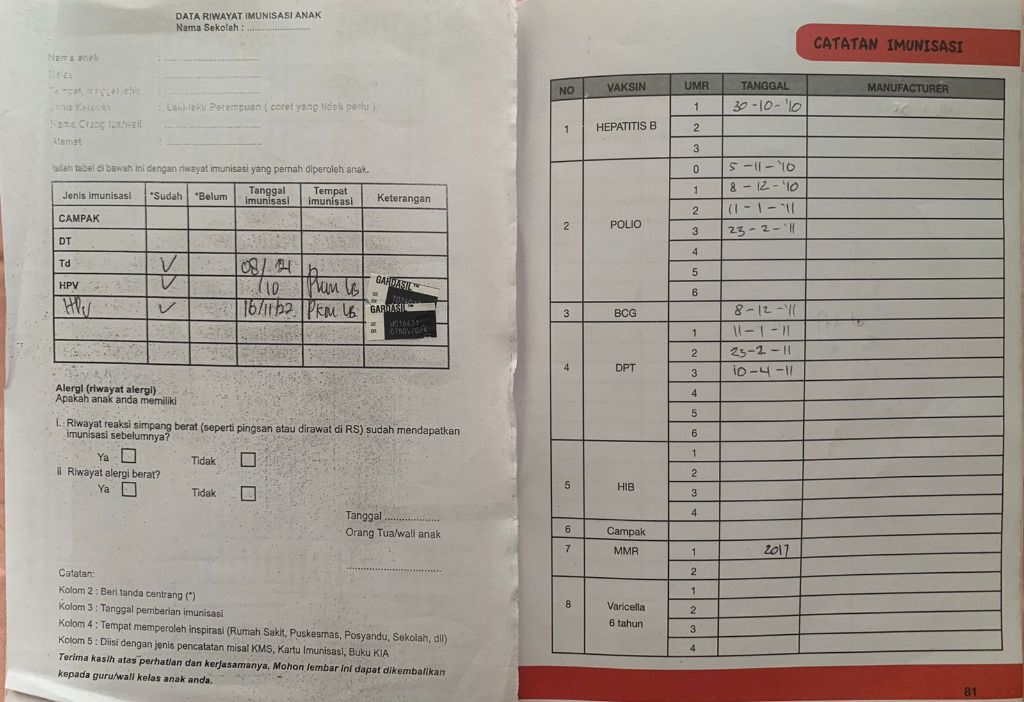 DATA RIWAYAT IMUNISASI ANAK
Nama Sekolah : ......................
Nama anak : ..............................
Kelas : ..............................
Tempat, tanggal lahir : ..............................
Jenis Kelamin : Laki-laku Perempuan ( coret yang tidak perlu )
Nama Orang tua/wali : ..............................
Alamat : ..............................
Isilah tabel di bawah ini dengan riwayat imunisasi yang pernah diperoleh anak.
Jenis imunisasi *Sudah *Belum Tanggal imunisasi Tempat imunisasi Keterangan
CAMPAK
DT
Td ✓ 08/ 21
HPV ✓ /10 Pkm LB GARDASIL™
HPV ✓ 16/11/22 PKM LB GARDASIL™
W016431
07NOV2024
Alergi (riwayat alergi)
Apakah anak anda memiliki
i. Riwayat reaksi simpang berat (seperti pingsan atau dirawat di RS) sudah mendapatkan
imunisasi sebelumnya?
Ya Tidak
ii Riwayat alergi berat?
Ya Tidak
Tanggal ..................
Orang Tua/wali anak
..............................
Catatan:
Kolom 2 : Beri tanda centrang (*)
Kolom 3 : Tanggal pemberian imunisasi
Kolom 4 : Tempat memperoleh inspirasi (Rumah Sakit, Puskesmas, Posyandu, Sekolah, dll)
Kolom 5 : Diisi dengan jenis pencatatan misal KMS, Kartu Imunisasi, Buku KIA
Terima kasih atas perhatian dan kerjasamanya. Mohon lembar ini dapat dikembalikan
kepada guru/wali kelas anak anda.
CATATAN IMUNISASI
NO VAKSIN UMR TANGGAL MANUFACTURER
1 HEPATITIS B 1 30-10-'10
2
3
2 POLIO 0 5-11-'10
1 8-12-'10
2 11-1-'11
3 23-2-'11
4
5
6
3 BCG 8-12-'11
4 DPT 1 11-1-11
2 23-2-11
3 10-4-11
4
5
6
5 HIB 1
2
3
4
6 Campak
7 MMR 1 2017
2
8 Varicella 6 tahun 1
2
3
4
81